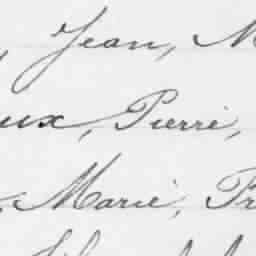 , Jean, M
ux, Pierre,
Marie, Fr